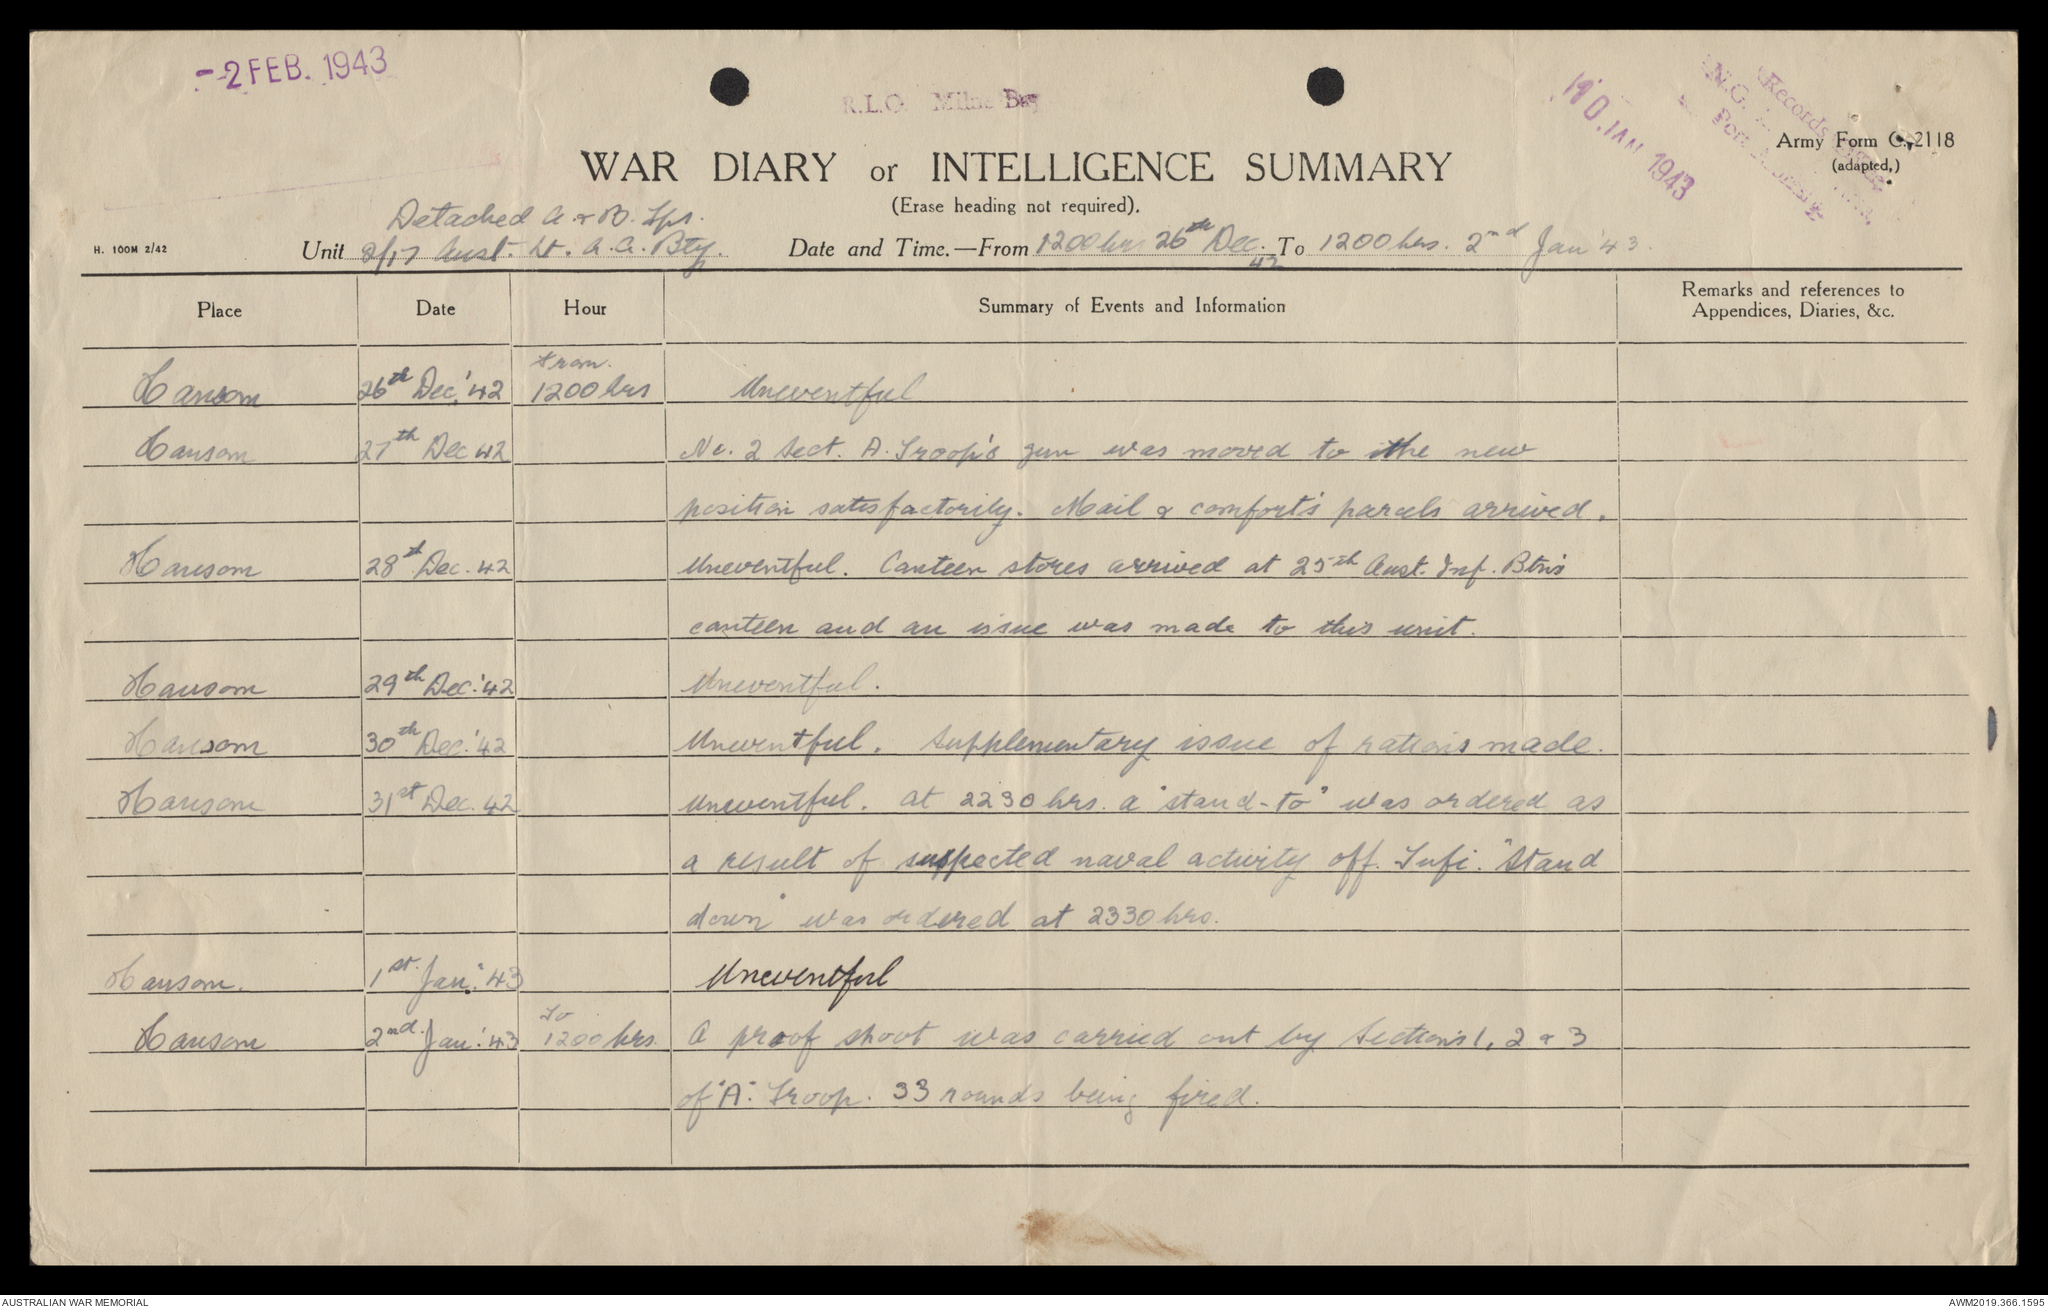 -2 FEB. 1943
R.L.O. Milne Bay
10 JAN 1943
Records
N.G.
Port Moresby
Army Form C. 2118
(adapted.)
WAR DIARY or INTELLIGENCE SUMMARY
(Erase heading not required).
Detached A. & B. Tps.
H. 100M 2/42
Unit 2/17 Aust. Lt. A.A. Bty. Date and Time.—From 1200 hrs 26th Dec. 42 To 1200 hrs. 2nd Jan '43.
Place Date Hour Summary of Events and Information Remarks and references to Appendices, Diaries, &c.
from.
Hansom 26th Dec. '42 1200 hrs Uneventful
Hansom 27th Dec 42 No. 2 Sect. A. Troop's gun was moved to the new
position satisfactorily. Mail & comfort's parcels arrived.
Hansom 28th Dec. 42 Uneventful. Canteen stores arrived at 25th Aust. Inf. Btn's
canteen and an issue was made to this unit.
Hansom 29th Dec. '42 Uneventful.
Hansom 30th Dec. '42 Uneventful. Supplementary issue of rations made.
Hansom 31st Dec. 42 Uneventful. At 2230 hrs. a "stand-to" was ordered as
a result of suspected naval activity off Tufi. "Stand
down" was ordered at 2330 hrs.
Hansom. 1st. Jan. '43 Uneventful
To
Hansom 2nd. Jan. '43 1200 hrs. A proof shoot was carried out by Sections 1, 2 & 3
of "A". Troop. 33 rounds being fired.
AUSTRALIAN WAR MEMORIAL
AWM2019.366.1595